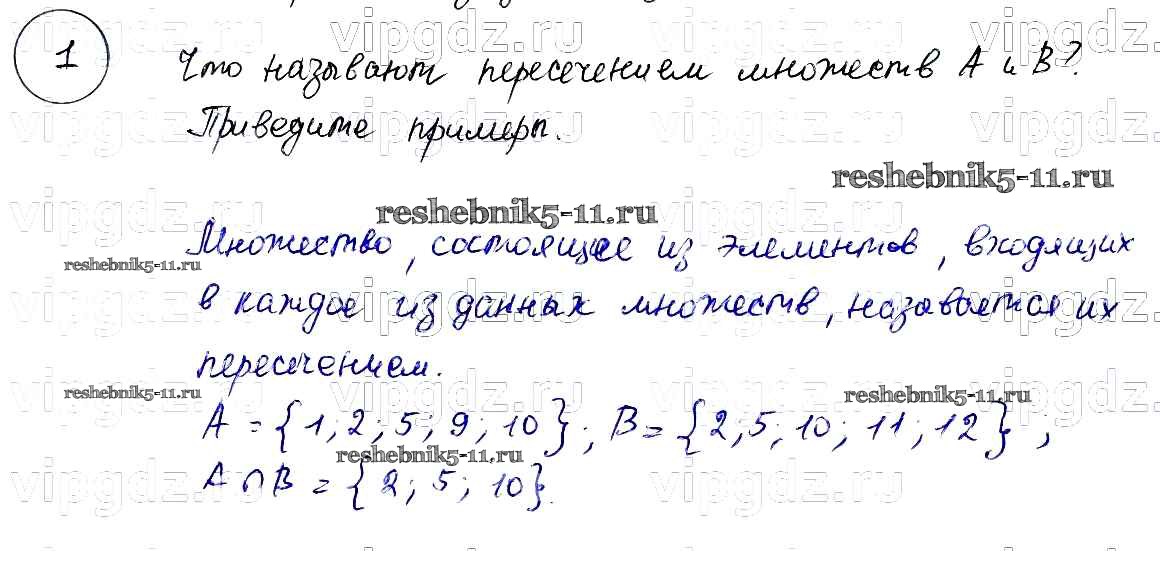 1
Что называют пересечением множеств A и B?
Приведите примеры.
reshebnik5-11.ru
reshebnik5-11.ru
Множество, состоящее из элементов, входящих
reshebnik5-11.ru
в каждое из данных множеств, называется их
пересечением.
reshebnik5-11.ru
reshebnik5-11.ru
A = {1; 2; 5; 9; 10}; B = {2; 5; 10; 11; 12};
reshebnik5-11.ru
A ∩ B = {2; 5; 10}.
vipgdz.ru